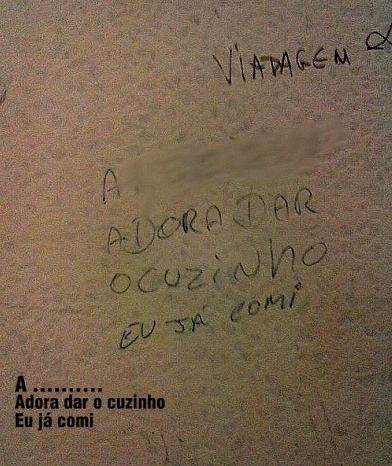 VIADAGEM
A
ADORA DAR
O CUZINHO
EU JÁ COMI
A ..........
Adora dar o cuzinho
Eu já comi